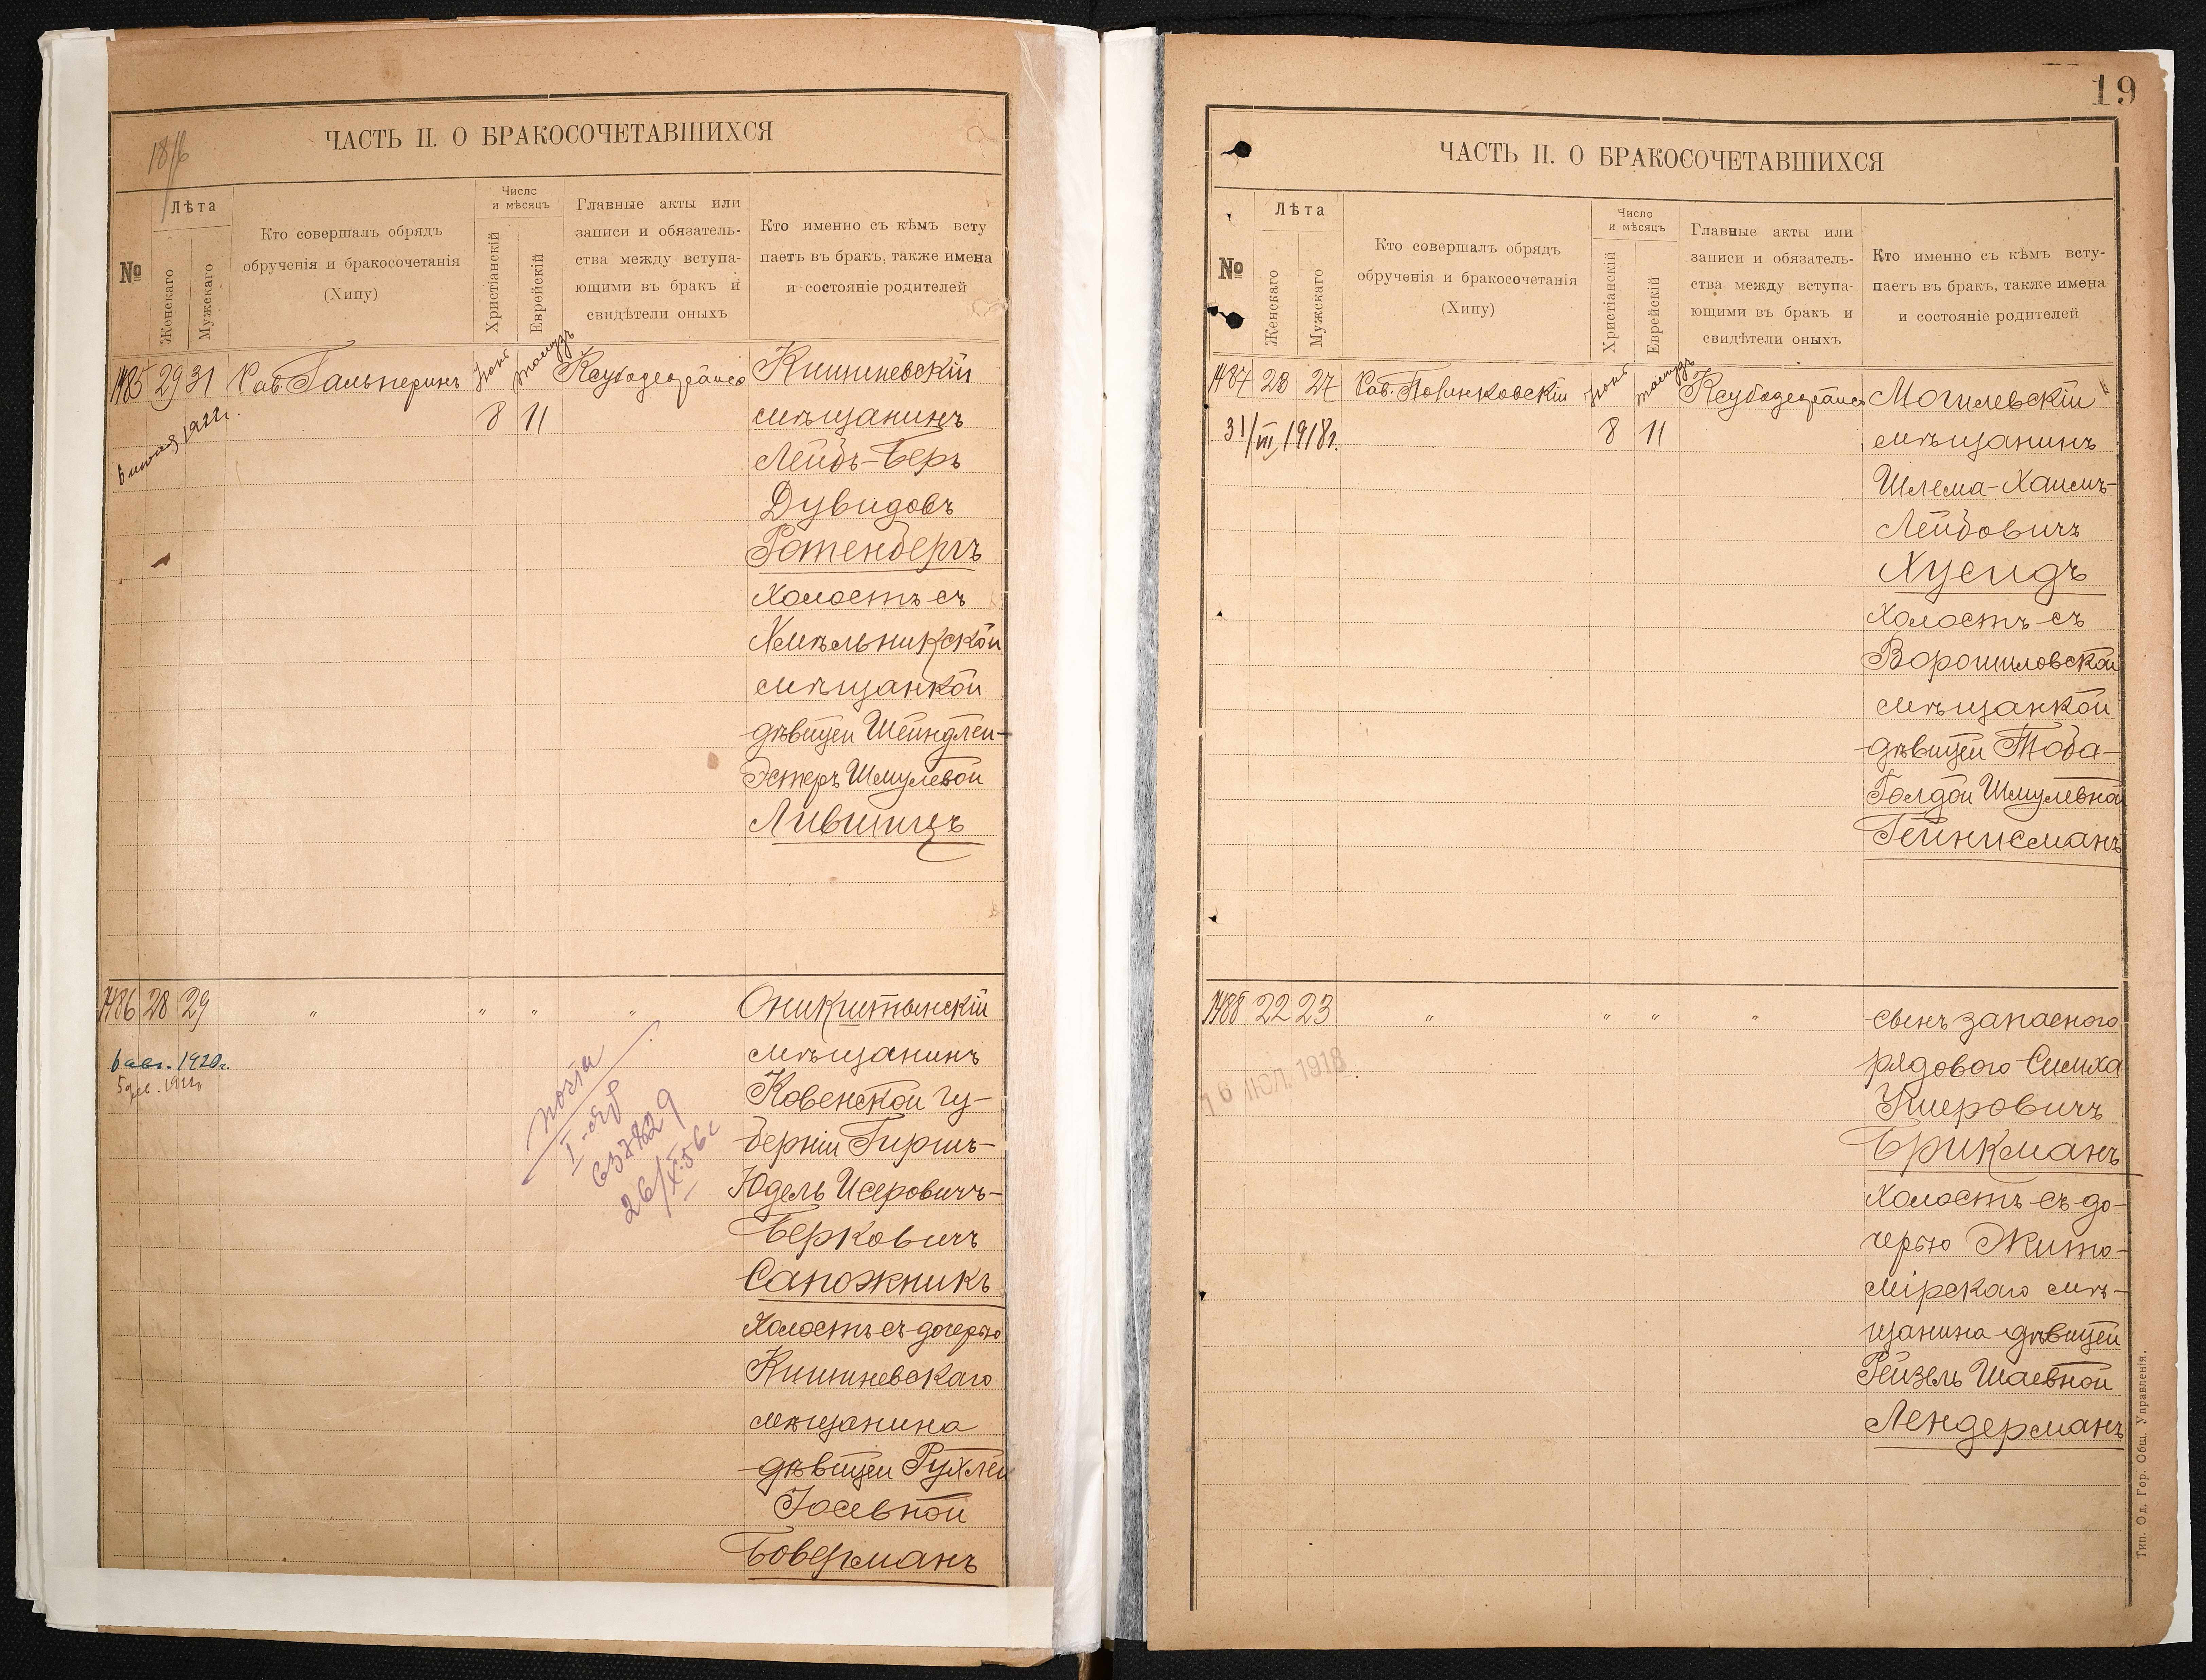 ЧАСТЬ II. О БРАКОСОЧЕТАВШИХСЯ
№
Лѣта
Женскаго
Мужскаго
Кто совершалъ обрядъ
обрученія и бракосочетанія
(Хипу)
Число
и мѣсяцъ
Христіанскій
Еврейскій
Главные акты или
записи и обязатель-
ства между вступа-
ющими въ бракъ и
свидѣтели оныхъ
Кто именно съ кѣмъ всту
паетъ въ бракъ, также имена
и состояніе родителей
1485 29 31 Рав. Гальперинъ Кишиневскій
8 11 мѣщанинъ
6 1922г.
Лейбъ-Беръ
Дувидовъ
Ротенбергъ
холостъ съ
Хмѣльникской
мѣщанкой
дѣвицей Шейндлей-
Эстеръ Шмулевой
Лившицъ
1486 28 29 " " " " Оникштынскій
6 авг. 1920г. мѣщанинъ
Ковенской гу-
берніи Гиршъ-
Юдель Исеровичъ-
Берковичъ
Сапожникъ
холостъ съ дочерью
Кишиневскаго
мѣщанина
дѣвицей Рухлей
Іосевной
Боверманъ
19
ЧАСТЬ II. О БРАКОСОЧЕТАВШИХСЯ
№
Лѣта
Женскаго
Мужскаго
Кто совершалъ обрядъ
обрученія и бракосочетанія
(Хипу)
Число
и мѣсяцъ
Христіанскій
Еврейскій
Главные акты или
записи и обязатель-
ства между вступа-
ющими въ бракъ и
свидѣтели оныхъ
Кто именно съ кѣмъ всту-
паетъ въ бракъ, также имена
и состояніе родителей
1487 23 27 Рав. Могилевскій
31/III 1918г. 8 11 мѣщанинъ
Шлема-Хаимъ-
Лейбовичъ
Хусидъ
холостъ съ
Ворошиловской
мѣщанкой
дѣвицей Тоба-
Голдой Шмулевной
Гейнисманъ
1488 22 23 " " " " сынъ запасного
16 ІЮЛ. 1918 рядового Симха
Кперовичъ
Брикманъ
холостъ съ до-
черью Жито-
мірскаго мѣ-
щанина дѣвицей
Рейзель Шаевной
Лендерманъ
Тип. Од. Гор. Общ. Управленія.